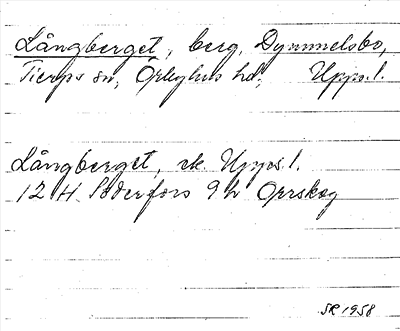 Långberget, berg, Dymmelsbo,
Tierps sn, Örbyhus hd, Upps. l.
Långberget, ek. Upps. l.
12 H Söderfors 9 h Orrskog
SR 1958